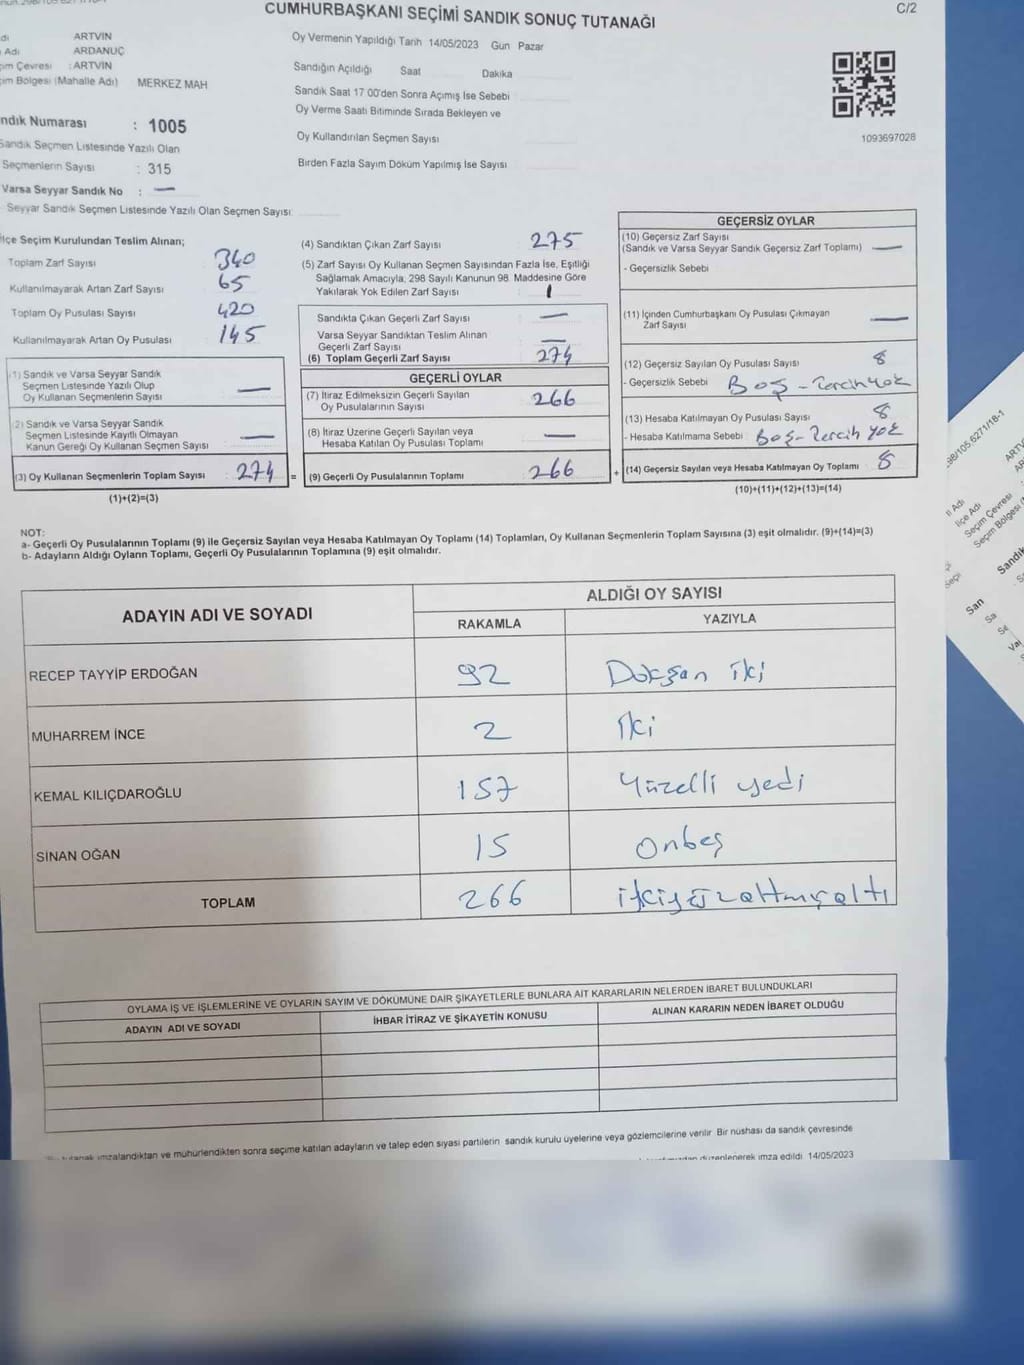 CUMHURBAŞKANI SEÇİMİ SANDIK SONUÇ TUTANAĞI
C/2
ARTVIN
Adı ARDANUÇ
Çevresi : ARTVIN
Bölgesi (Mahalle Adı) MERKEZ MAH
Numarası : 1005
Sandık Seçmen Listesinde Yazılı Olan
Seçmenlerin Sayısı : 315
Varsa Seyyar Sandık No : —
Seyyar Sandık Seçmen Listesinde Yazılı Olan Seçmen Sayısı:
Oy Vermenin Yapıldığı Tarih 14/05/2023 Gün Pazar
Sandığın Açıldığı Saat Dakika
Sandık Saat 17 00'den Sonra Açımış İse Sebebi
Oy Verme Saati Bitiminde Sırada Bekleyen ve
Oy Kullandırılan Seçmen Sayısı
Birden Fazla Sayım Döküm Yapılmış İse Sayısı
1093697028
İlçe Seçim Kurulundan Teslim Alınan;
Toplam Zarf Sayısı 340
Kullanılmayarak Artan Zarf Sayısı 65
Toplam Oy Pusulası Sayısı 420
Kullanılmayarak Artan Oy Pusulası 145
(1) Sandık ve Varsa Seyyar Sandık
Seçmen Listesinde Yazılı Olup
Oy Kullanan Seçmenlerin Sayısı —
(2) Sandık ve Varsa Seyyar Sandık
Seçmen Listesinde Kayıtlı Olmayan
Kanun Gereği Oy Kullanan Seçmen Sayısı —
(3) Oy Kullanan Seçmenlerin Toplam Sayısı 274 =
(1)+(2)=(3)
(4) Sandıktan Çıkan Zarf Sayısı 275
(5) Zarf Sayısı Oy Kullanan Seçmen Sayısından Fazla İse, Eşitliği
Sağlamak Amacıyla, 298 Sayılı Kanunun 98. Maddesine Göre
Yakılarak Yok Edilen Zarf Sayısı 1
Sandıkta Çıkan Geçerli Zarf Sayısı —
Varsa Seyyar Sandıktan Teslim Alınan
Geçerli Zarf Sayısı —
(6) Toplam Geçerli Zarf Sayısı 274
GEÇERLİ OYLAR
(7) İtiraz Edilmeksizin Geçerli Sayılan
Oy Pusulalarının Sayısı 266
(8) İtiraz Üzerine Geçerli Sayılan veya
Hesaba Katılan Oy Pusulası Toplamı —
(9) Geçerli Oy Pusulalarının Toplamı 266 +
GEÇERSİZ OYLAR
(10) Geçersiz Zarf Sayısı
(Sandık ve Varsa Seyyar Sandık Geçersiz Zarf Toplamı) —
- Geçersizlik Sebebi
(11) İçinden Cumhurbaşkanı Oy Pusulası Çıkmayan
Zarf Sayısı —
(12) Geçersiz Sayılan Oy Pusulası Sayısı 8
- Geçersizlik Sebebi Boş - Tercih yok
(13) Hesaba Katılmayan Oy Pusulası Sayısı 8
- Hesaba Katılmama Sebebi Boş - Tercih yok
(14) Geçersiz Sayılan veya Hesaba Katılmayan Oy Toplamı 8
(10)+(11)+(12)+(13)=(14)
NOT:
a- Geçerli Oy Pusulalarının Toplamı (9) ile Geçersiz Sayılan veya Hesaba Katılmayan Oy Toplamı (14) Toplamları, Oy Kullanan Seçmenlerin Toplam Sayısına (3) eşit olmalıdır. (9)+(14)=(3)
b- Adayların Aldığı Oyların Toplamı, Geçerli Oy Pusulalarının Toplamına (9) eşit olmalıdır.
ADAYIN ADI VE SOYADI ALDIĞI OY SAYISI
RAKAMLA YAZIYLA
RECEP TAYYİP ERDOĞAN 92 Dokşan iki
MUHARREM İNCE 2 İki
KEMAL KILIÇDAROĞLU 157 Yüzelli yedi
SİNAN OĞAN 15 Onbeş
TOPLAM 266 ikiyüzaltmışaltı
OYLAMA İŞ VE İŞLEMLERİNE VE OYLARIN SAYIM VE DÖKÜMÜNE DAİR ŞİKAYETLERLE BUNLARA AİT KARARLARIN NELERDEN İBARET BULUNDUKLARI
ADAYIN ADI VE SOYADI İHBAR İTİRAZ VE ŞİKAYETİN KONUSU ALINAN KARARIN NEDEN İBARET OLDUĞU
imzalandıktan ve mühürlendikten sonra seçime katılan adayların ve talep eden siyasi partilerin sandık kurulu üyelerine veya gözlemcilerine verilir Bir nüshası da sandık çevresinde
düzenlenerek imza edildi 14/05/2023
İl Adı
İlçe Adı
Seçim Çevresi
Seçim Bölgesi
Sandık